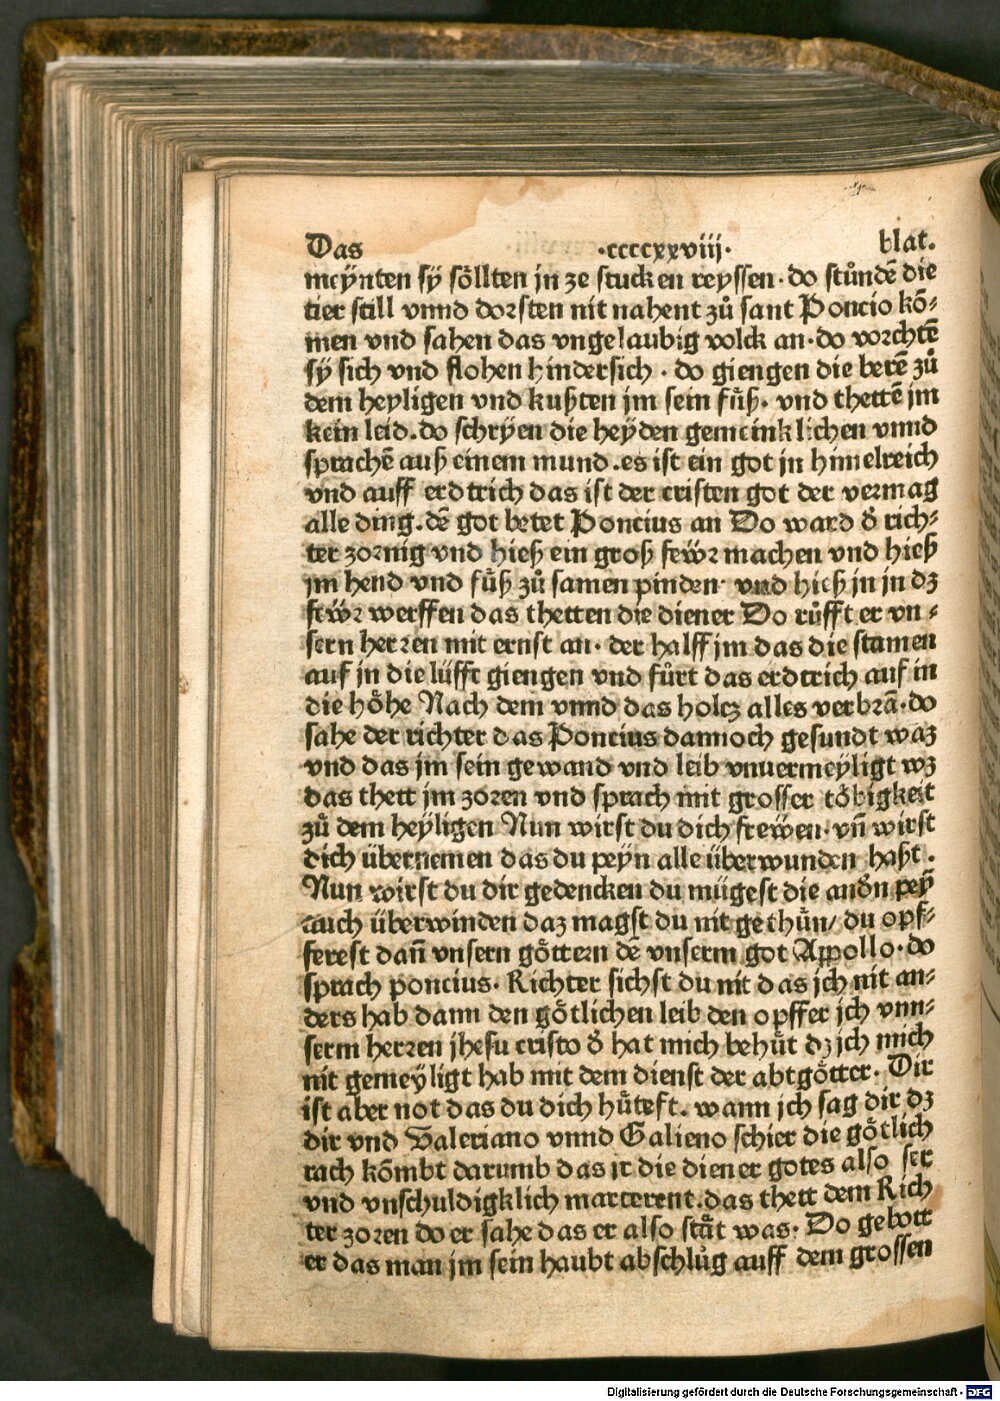 Das ·ccccxxviij· blat.
meÿnten sÿ söllten jn ze stucken reyssen· do stůndẽ die
tier still vnnd dorsten nit nahent zů sant Poncio kõ-
men vnd sahen das vngelaubig volck an·do vorchtẽ
sÿ sich vnd flohen hindersich · do giengen die berẽ zů
dem heyligen vnd kußten jm sein fůß· vnd thettẽ jm
kein leid.do schrÿen die heÿden gemeinklichen vnnd
sprachẽ auß einem mund.es ist ein got jn himelreich
vnd auff erdtrich das ist der cristen got der vermag
alle ding.dẽ got betet Poncius an Do ward d̕ rich-
ter zornig vnd hieß ein groß feẅr machen vnd hieß
jm hend vnd fůß zů samen pinden· vnd hieß jn jn dz
feẅr werffen das thetten die diener Do růfft er vn-
sern herren mit ernst an· der halff jm das die flamen
auf jn die lüfft giengen vnd fůrt das erdtrich auf in
die höhe Nach dem vnnd das holcz alles verbrã·do
sahe der richter das Poncius dannoch gesundt waz
vnd das jm sein gewand vnd leib vnuermeÿligt wz
das thett jm zoren vnd sprach mit grosser töbigkeit
zů dem heÿligen Nun wirst du dich freẅen· vñ wirst
dich übernemen das du peÿn alle überwunden haßt.
Nun wirst du dir gedencken du mügest die and̕n peÿ̃
auch überwinden daz magst du nit gethůn/ du opf-
ferest dañ vnsern göttern dẽ vnserm got Appollo·do
sprach poncius· Richter sichst du nit das jch nit an-
ders hab dann den götlichen leib den opffer jch vnn-
serm herren jhesu cristo d̕ hat mich behůt dz jch mich
nit gemeÿligt hab mit dem dienst der abtgötter· Dir
ist aber not das du dich hůtest. wann jch sag dir dz
dir vnd Valeriano vnnd Galieno schier die götlich
rach kõmbt darumb das jr die diener gotes also ser
vnd vnschuldigklich marterent.das thett dem Rich
ter zoren do er sahe das er also stät was· Do gebott
er das man jm sein haubt abschlůg auff dem grossen
Digitalisierung gefördert durch die Deutsche Forschungsgemeinschaft - DFG